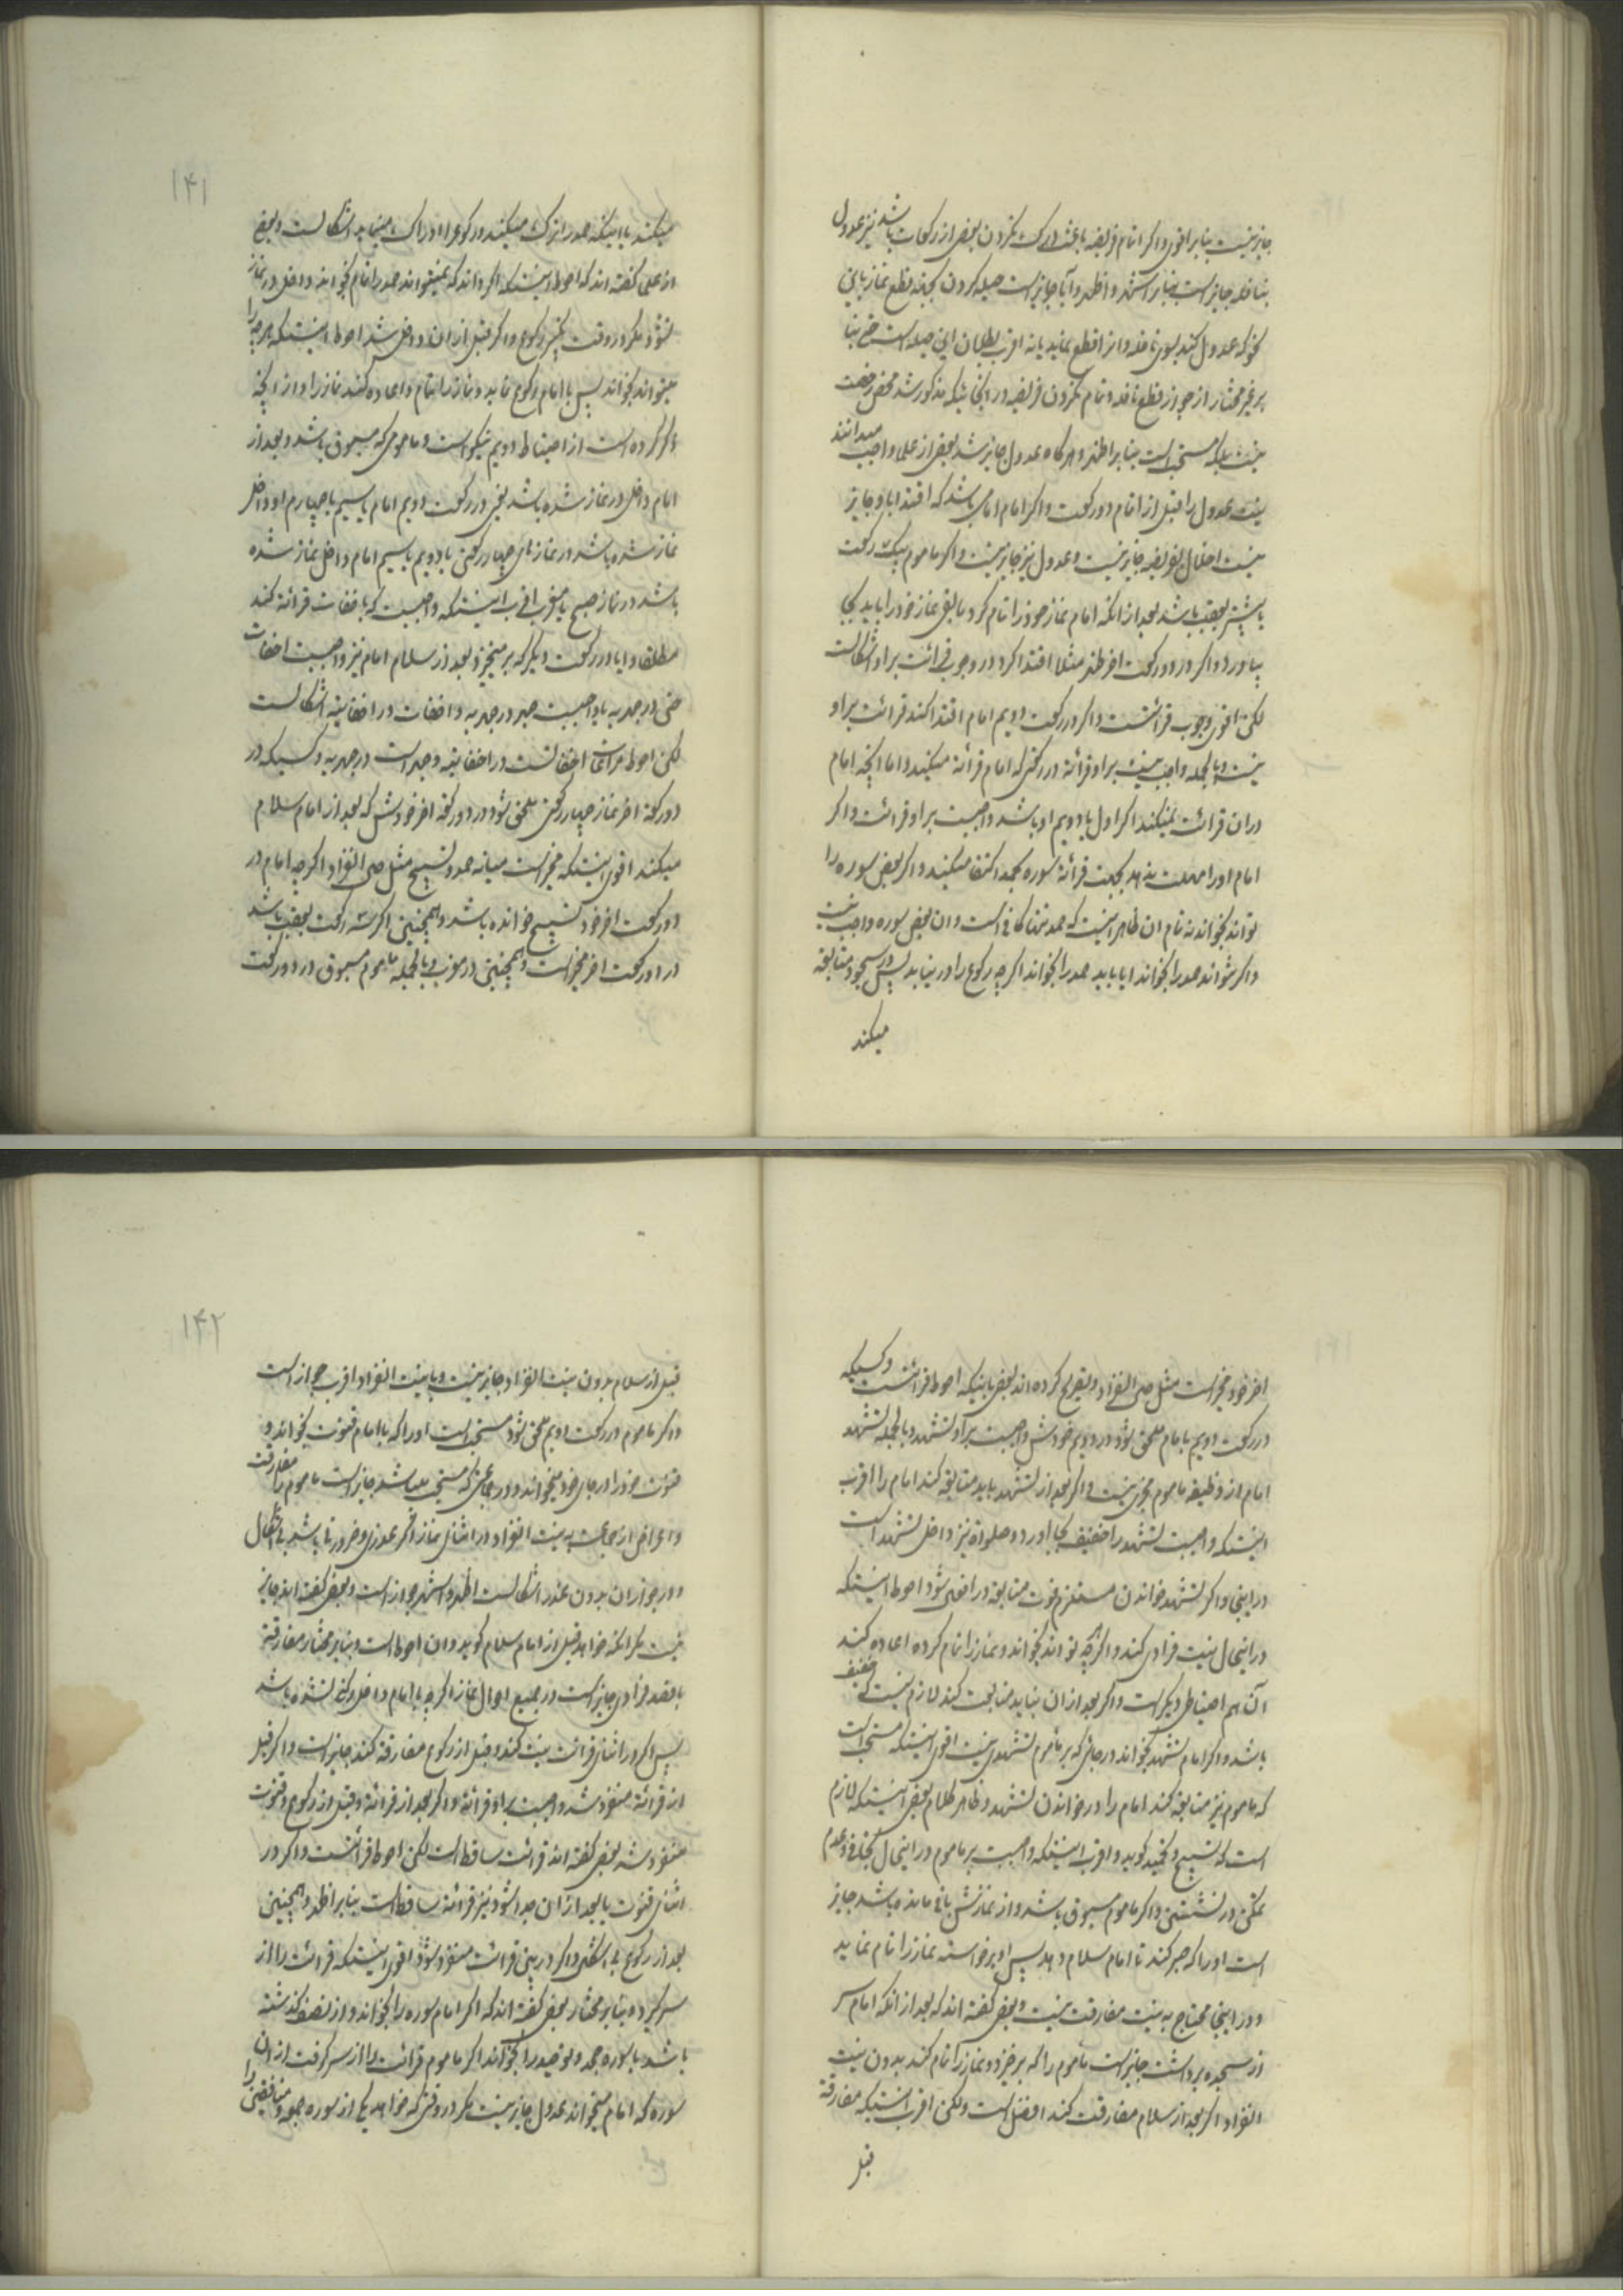 جایز نیست بنابر اقوی و اکر اتمام فریضه باعث درک نکردن بعض از رکعات باشد نیز عدول
بنافله جایز است بنابر اشهر و اظهر و آیا جایز است حیله کردن بجهة قطع نماز باین
نحو که عدول کند بسوی نافله و انرا قطع نماید یا نه اقرب بطلان این حیله است حتی بنا
بر غیر مختار از جواز قطع نافله و تمام نکردن فریضه در اینجا نیکه مذکور شد محض رخصت
نیست بلکه مستحبست بنابر اظهر و هر کاه عدول جایز شد بعض از علما واجب میدانند
نیت عدول را قبل از اتمام دو رکعت و اکر امام امامی باشد که اقتدا باو جایز
نیست اخلال بفریضه جایز نیست و عدول نیز جایز نیست و اکر ماموم بیک رکعت
یا بیشتر بعقب باشد بعد از انکه امام نماز خود را تمام کرد مابقی نماز خود را باید بجا
بیاورد و اکر در دو رکعت اخر ظهر مثلا اقتدا کرد در وجوب قرائت بر او اشکالست
لکن اقوی وجوب قرائتست و اکر در رکعت دویم امام اقتدا کند قرائت بر او
نیست و بالجمله واجب نیست بر او قرائة در رکعتی که امام قرائة میکند و اما انچه امام
در ان قرائت نمیکند اکر اول یا دویم او باشد واجبست بر او قرائت و اکر
امام او را مهلت ندهد بجهت قرائة سوره بحمد اکتفا میکند و اکر بعض سوره را
تواند بخواند نه تمام ان ظاهر اینست که حمد تنها کافیست و ان بعض سوره واجب نیست
و اکر نتواند حمد را بخواند ایا باید حمد را بخواند اکرچه رکوع را در نیابد پس در سجود متابعة
میکند
۱۴۱
میکند یا اینکه حمد را ترک میکند و رکوع را ادراک مینماید اشکالست و بعض
از علما کفته اند که احوط اینستکه اکر داند که نمیتواند حمد را تمام بخواند داخل در نماز
نشود مکر در وقت تکبیر رکوع و اکر قبل از ان داخل شد احوط اینستکه هر چه را
میتواند بخواند پس با امام رکوع نماید و نماز را تمام و اعاده کند نماز را و از انچه
ذکر کرده است از احتیاط دویم نیکو است و ماموم که مسبوق باشد و بعد از
امام داخل در نماز شده باشد یعنی در رکعت دویم امام یا سیم یا چهارم او داخل
نماز شده باشد در نمازهای چهار رکعتی یا دویم یا سیم امام داخل نماز شده
باشد در نماز صبح یا مغرب اقرب اینستکه واجبست که باخفات قرائة کند
مطلقا و ایا در رکعت دیکر که بر میخیزد بعد از سلام امام نیز واجبست اخفات
حتی در جهریه یا واجبست جهر در جهریه و اخفات در اخفاتیه اشکالست
لکن احوط مراعات اخفاتست در اخفاتیه و جهر است در جهریه و کسیکه در
دو رکعة اخر نماز چهار رکعتی ملحق شود در دو رکعة اخر خودش که بعد از امام سلام
میکند اقوی اینستکه مخیر است میانه حمد و تسبیح مثل صلی انفراد اکرچه امام در
دو رکعت اخر خود تسبیح خوانده باشد و همچنین اکر سه رکعت بعقب باشد
در دو رکعت اخر مخیر است و همچنین در مغرب و بالجمله ماموم مسبوق در دو رکعت
اخر خود مخیر است مثل صلی انفراد و تصریح کرده اند بعض باینکه احوط قرائتست و کسیکه
در رکعت دویم با امام ملحق شود در دویم خودش واجبست بر او تشهد و بالجمله تشهد
امام از وظیفه ماموم مجزی نیست و اکر بعد از تشهد باید متابعة کند امام را اقرب
اینستکه واجبست تشهد را خفیف بجا اورد و صلواة نیز داخل تشهد است
در اینجا و اکر تشهد خواندن مستلزم فوت متابعة در افعال شود احوط اینستکه
در اینحال نیت فرادی کند و اکر چه تواند بخواند و نماز را تمام کرده اعاده کند
آن هم احتیاطی دیکر است و اکر بعد از ان بنابد متابعت کند لازم نیست که خفیف
باشد و اکر امام تشهد بخواند در جائی که بر ماموم تشهدی نیست اقوی اینستکه مستحب است
که ماموم نیز متابعة کند امام را در خواندن تشهد و ظاهر کلام بعض اینستکه لازم
است که تسبیح و تحمید کوید و اقرب اینستکه واجبست بر ماموم در اینحال تجافی و عدم
تمکن در نشستن و اکر ماموم مسبوق باشد و از نمازش باقی مانده باشد جایز
است او را که صبر کند تا امام سلام دهد پس او برخواسته نماز را تمام نماید
و در اینجا محتاج به نیت مفارقت نیست و بعض کفته اند که بعد از انکه امام سر
از سجده برداشت جایز است ماموم را که برخیزد و نماز را تمام کند بدون نیت
انفراد اکر بعد از سلام مفارقت کند افضل است ولکن اقرب اینستکه مفارقة
قبل
۱۴۲
قبل از سلام بدون نیت انفراد جایز نیست و با نیت انفراد اقرب جواز است
و اکر ماموم در رکعت دویم ملحق شود مستحب است او را که با امام قنوت بخواند و
قنوت خود را در جای خود میخواند و در جماعتی که مستحب باشد جایز است ماموم را مفارقت
و اعراض از جماعت به نیت انفراد در اثنای نماز اکر عذری و ضرورتی باشد بی اشکال
و در جواز ان بدون عذر اشکالست اظهر و اشهر جواز است و بعض کفته اند جایز
نیست مکر انکه خواهد قبل از امام سلام کوید و ان احوط است و بنابر مختار مفارقة
با قصد فرادی جایز است در جمیع احوال نماز اکرچه با امام داخل رکنی نشده باشد
پس اکر در اثنای قرائت نیت کند و قبل از رکوع مفارقة کند جایز است و اکر قبل
از قرائة منفرد شد واجبست بر او قرائة و اکر بعد از قرائة و قبل از رکوع و قنوت
منفرد شد بعض کفته اند قرائت ساقط است لکن احوط قرائتست و اکر در
اثنای قنوت یا بعد از ان جدا شود نیز قرائة ساقط است بنابر اظهر و همچنین
بعد از رکوع بی اشکال و اکر در بین قرائت منفرد شود اقوی اینستکه قرائت را از
سر کیرد و بنابر مختار بعض کفته اند که اکر امام سوره را بخواند و از نصف کذشته
باشد یا سوره جحد و توحید را بخواند اکر ماموم قرائت را از سر کرفت از ان
سوره که امام میخواند عدول جایز نیست مکر در وقتی که خواهد یکی از سوره جمعه و منافقین را